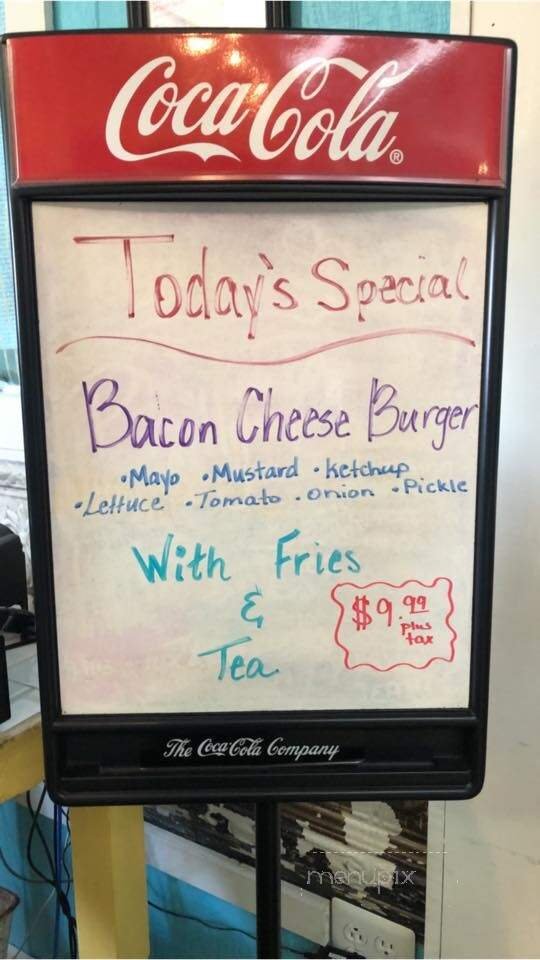 Coca-Cola®
Today's Special
Bacon Cheese Burger
•Mayo •Mustard •Ketchup
•Lettuce •Tomato •Onion •Pickle
With Fries
&
Tea
$9.99
plus
tax
The Coca-Cola Company
menupix